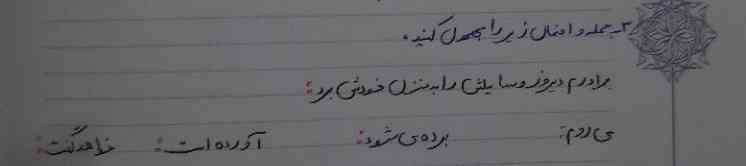 ۳_ جمله و افعال زیر را مجهول کنید.
برادرم دیروز وسایلش را به منزل خودش برد:
می روم: برده می شود: آورده است: خواهد گفت: